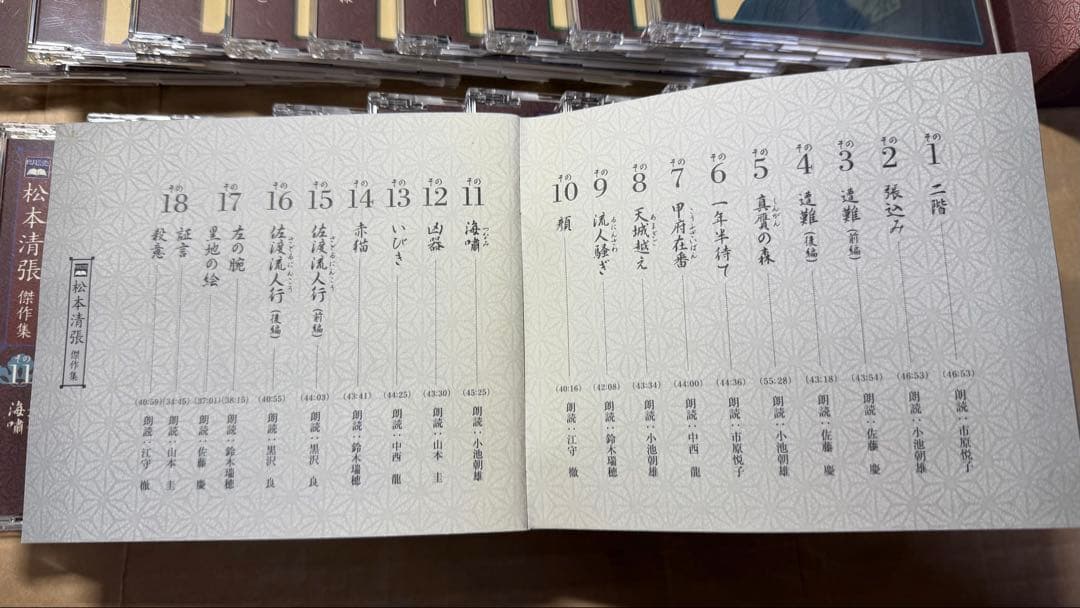 その1 二階 (46:53) 朗読:市原悦子
その2 張込み (46:53) 朗読:小池朝雄
その3 遭難(前編) (43:54) 朗読:佐藤 慶
その4 遭難(後編) (43:18) 朗読:佐藤 慶
その5 真贋の森 しんがん (55:28) 朗読:小池朝雄
その6 一年半待て (44:36) 朗読:市原悦子
その7 甲府在番 こうふざいばん (44:00) 朗読:中西 龍
その8 天城越え あまぎごえ (43:34) 朗読:小池朝雄
その9 流人騒ぎ るにんさわ (42:08) 朗読:鈴木瑞穂
その10 顔 (40:16) 朗読:江守 徹
その11 海嘯 つなみ (45:25) 朗読:小池朝雄
その12 凶器 (43:30) 朗読:山本 圭
その13 いびき (44:25) 朗読:中西 龍
その14 赤猫 (43:41) 朗読:鈴木瑞穂
その15 佐渡流人行(前編) さどるにんこう (44:03) 朗読:黒沢 良
その16 佐渡流人行(後編) さどるにんこう (40:55) 朗読:黒沢 良
その17 左の腕 (38:15) 朗読:鈴木瑞穂
黒地の絵 (37:01) 朗読:佐藤 慶
その18 証言 (34:45) 朗読:山本 圭
殺意 (40:59) 朗読:江守 徹
松本清張 傑作集
松本清張 傑作集
その11
海嘯